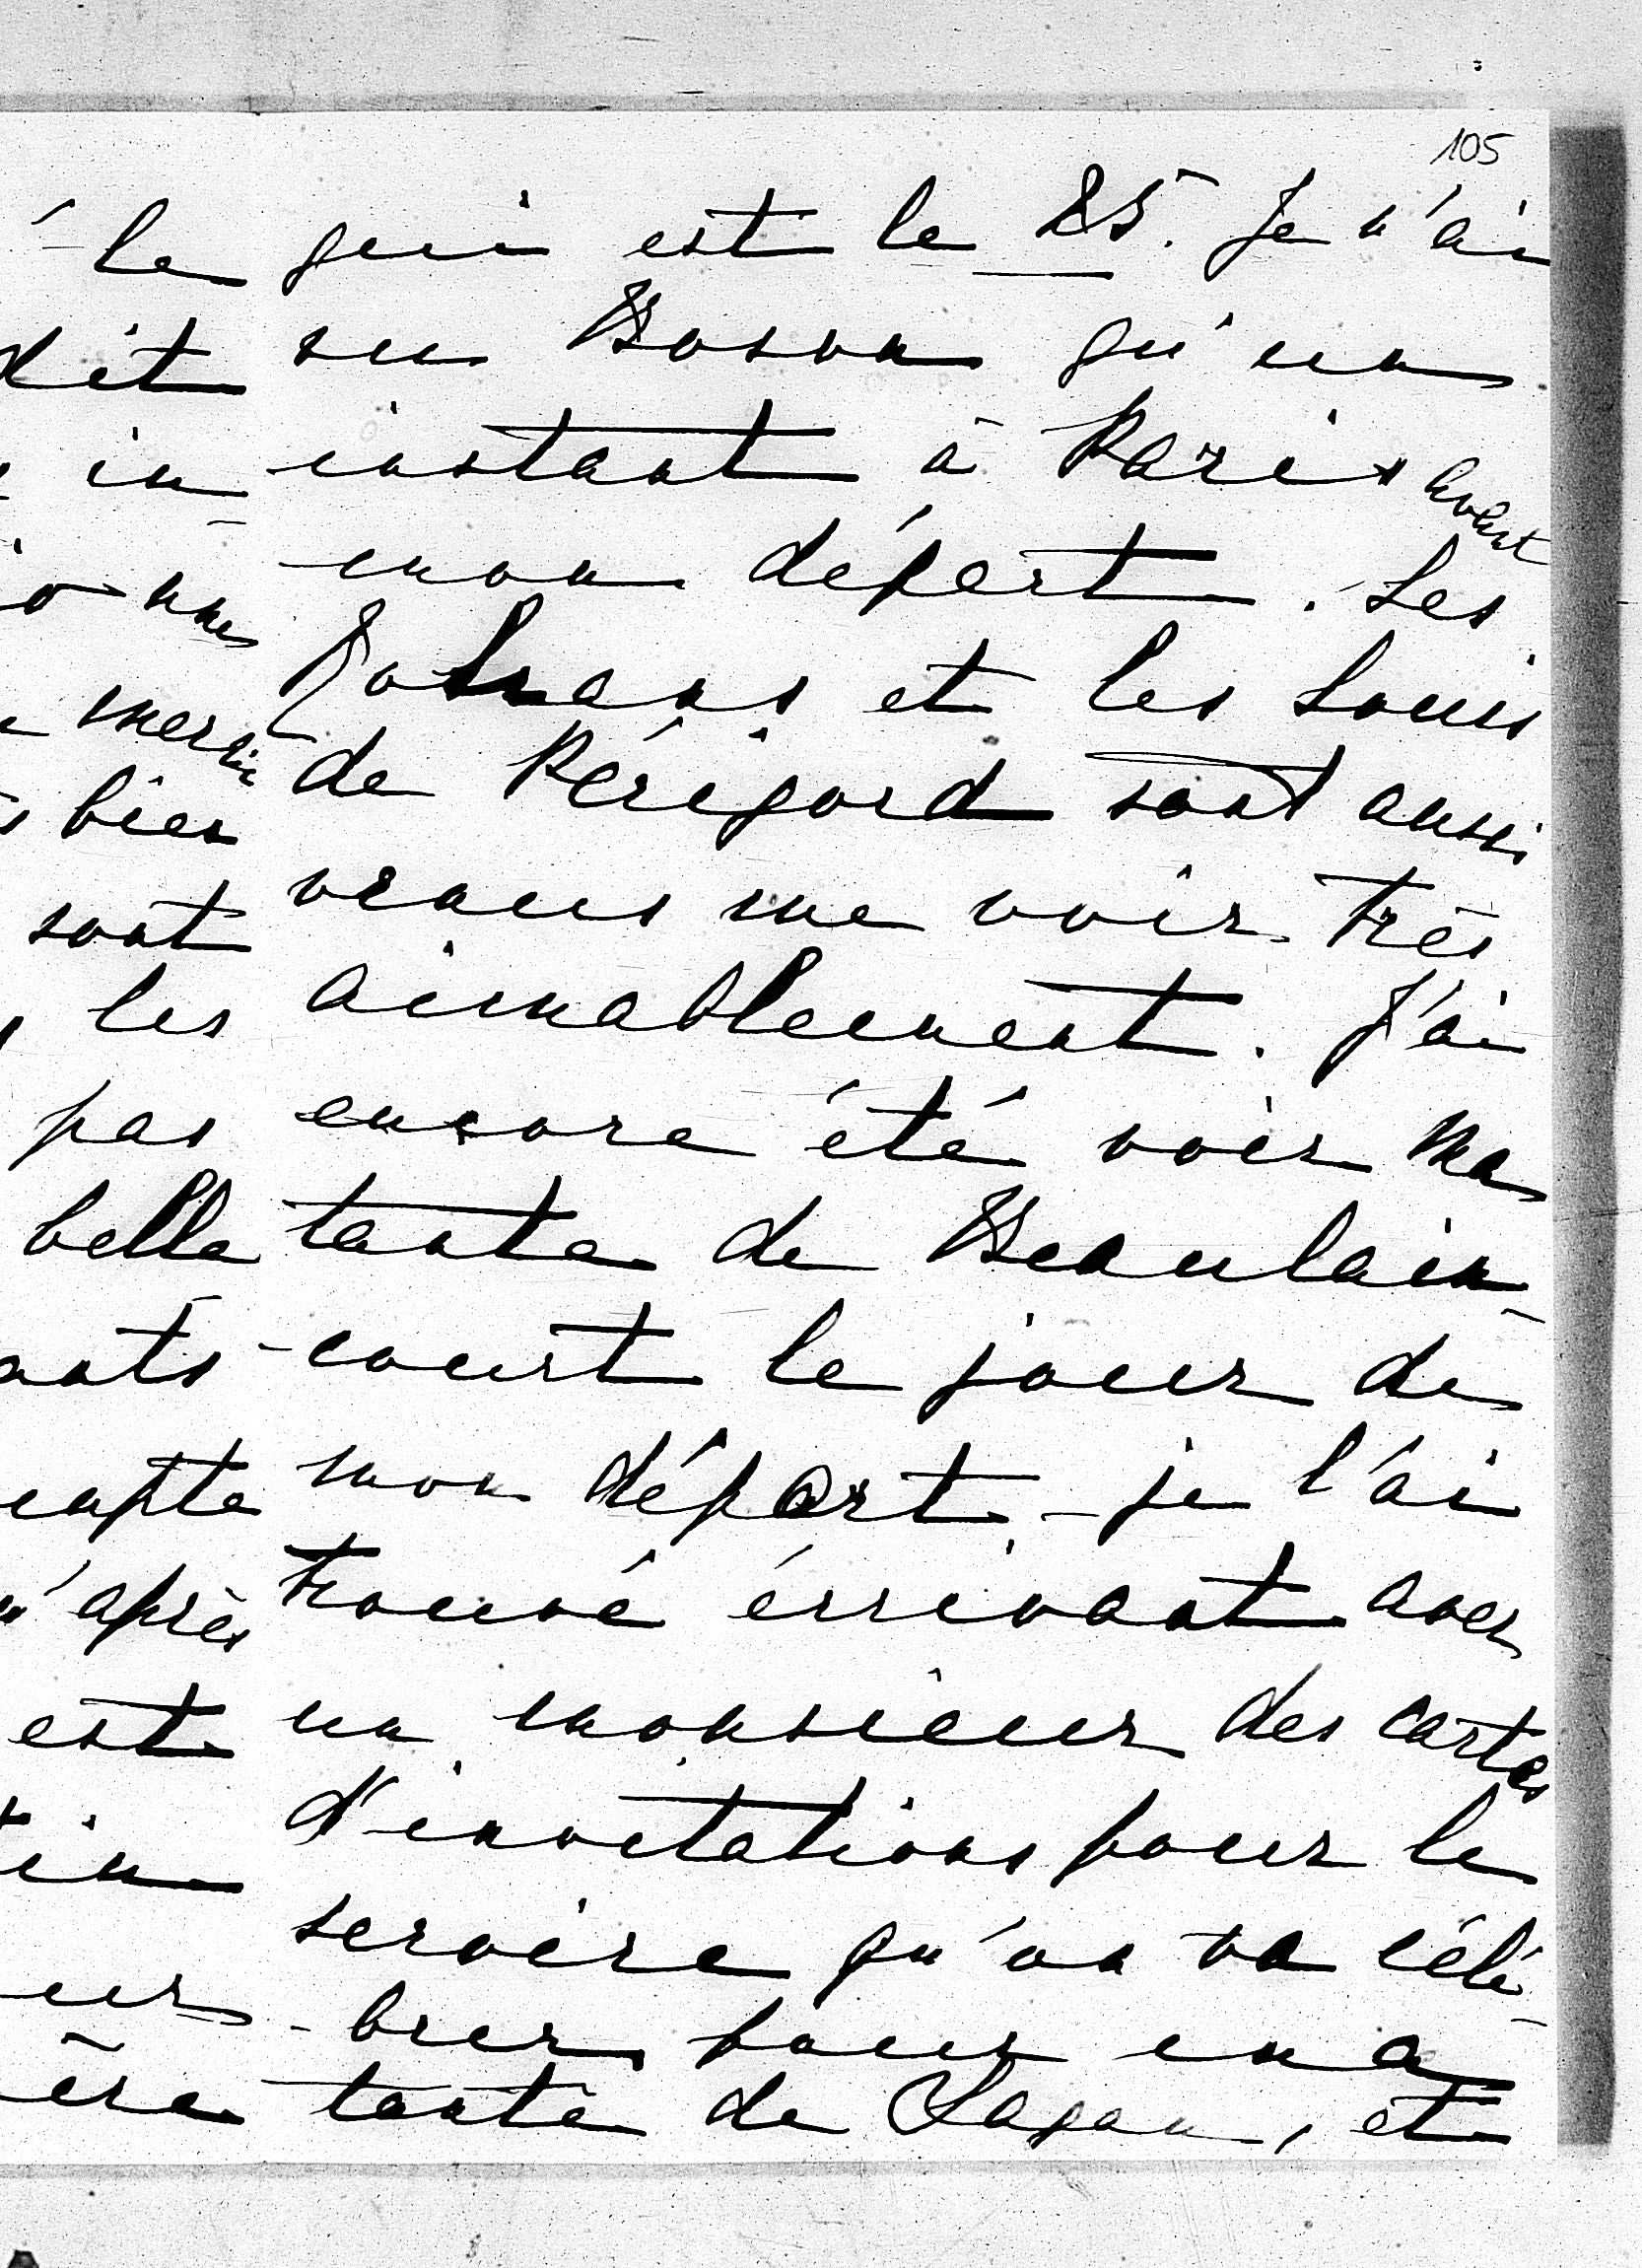 105
qui est le 25. Je n'ai
vu Boson qu'un
instant à Paris avant
mon départ. Les
Johans et les Louis
de Périgord sont aussi
venus me voir très
aimablement. J'ai
encore été voir ma
tante de Beaulain-
-court le jour de
mon départ, - je l'ai
trouvé écrivant avec
un monsieur des cartes
d'invitations pour le
service qu'on va célé-
-brer pour ma
tante de Sagan, et
le
dit
in-
merci
bien
sont
les
pas
belle
n'après
est